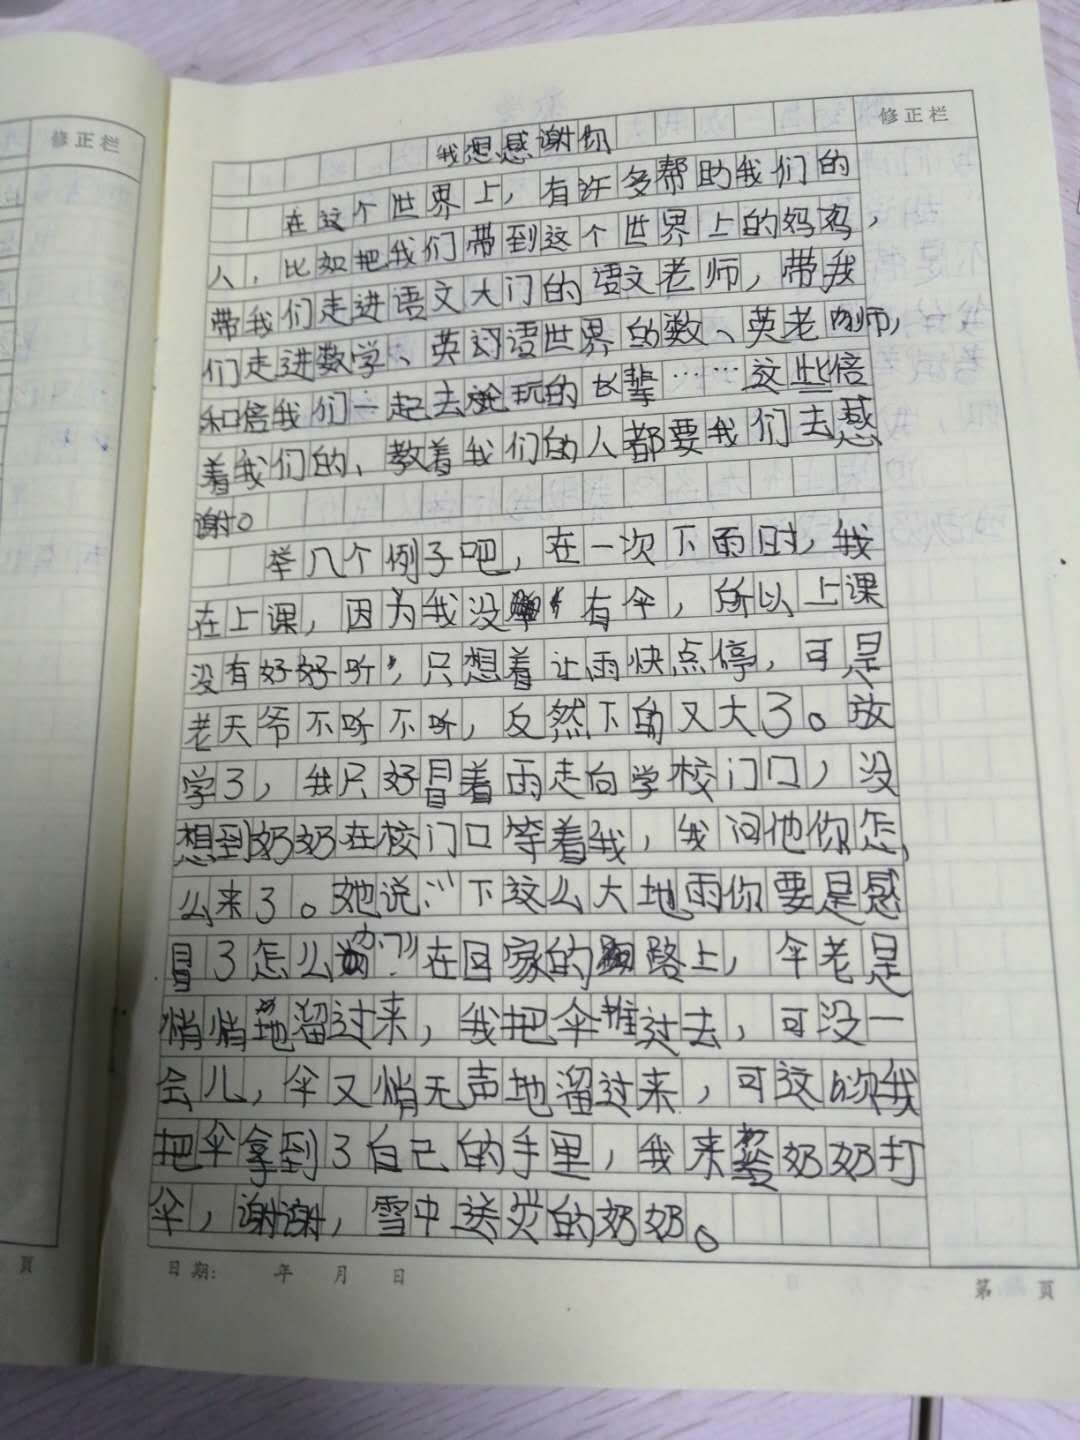 修正栏
修正栏
我想感谢你
在这个世界上，有许多帮助我们的
人，比如把我们带到这个世界上的妈妈，
带我们走进语文大门的语文老师，带我
们走进数学、英语世界的数、英老师，
和倍我们一起去玩的长辈……这些倍
着我们的、教着我们的人都要我们去感
谢。
举几个例子吧，在一次下雨时，我
在上课，因为我没有伞，所以上课
没有好好听，只想着让雨快点停，可是
老天爷不听不听，反然下的又大了。放
学了，我只好冒着雨走向学校门口，没
想到奶奶在校门口等着我，我问他你怎
么来了。她说："下这么大地雨你要是感
冒了怎么办？"在回家的路上，伞老是
悄悄地溜过来，我把伞推过去，可没一
会儿，伞又悄无声地溜过来，可这次我
把伞拿到了自己的手里，我来帮奶奶打
伞，谢谢，雪中送炭的奶奶。
日期： 年 月 日
第 页
页